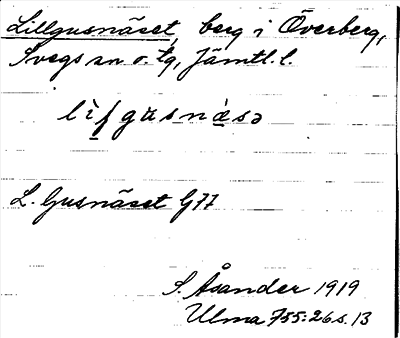 Lillgusnäset, berg i Överberg,
Svegs sn o. tg, Jämtl. l.
L. Gusnäset G77
S. Åsander 1919
Ulma 755:26 s. 13